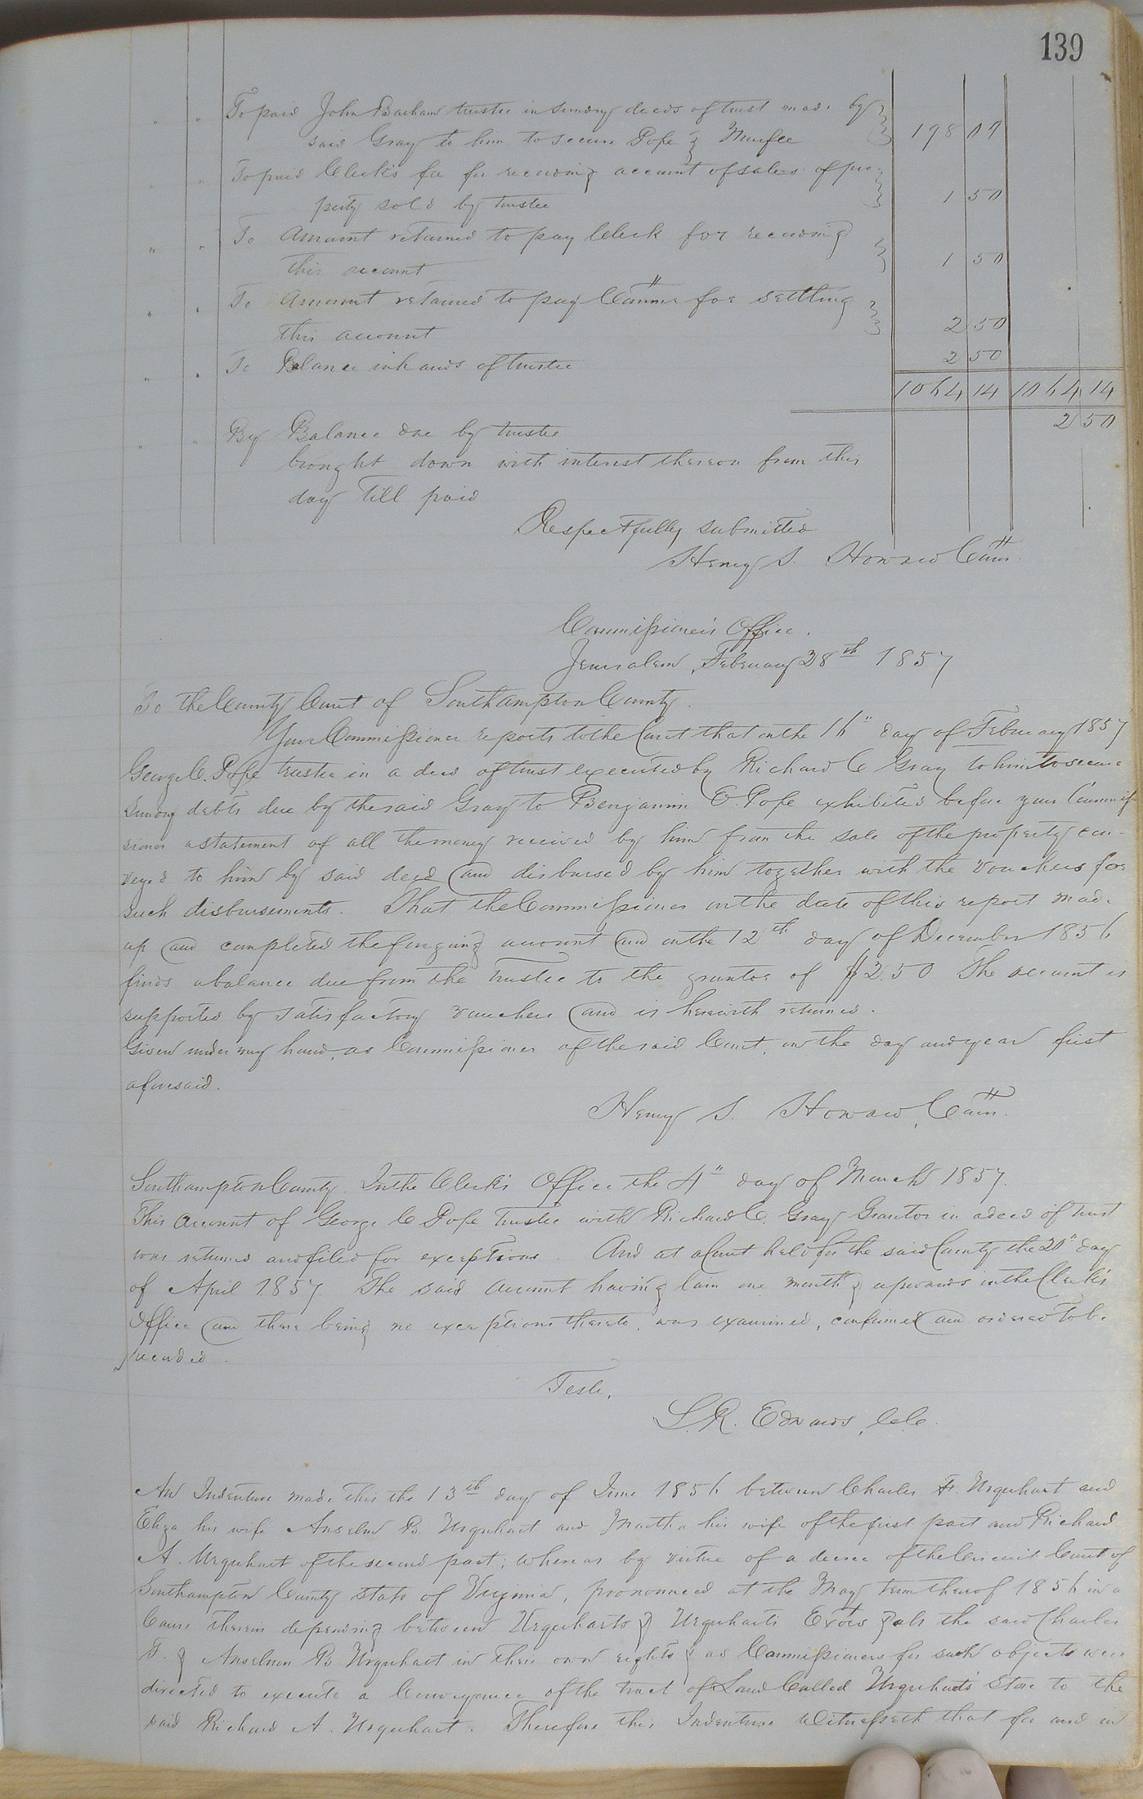 139
" " To paid John Barham trustee in sundry deeds of trust made by
said Gray to him to secure Pope & Murfee 198 09
To paid Clerk's fee for recording account of sales of pro-
perty sold by trustee 1 50
" " To Amount returned to pay Clerk for recording
this account 1 50
" " To Amount retained to pay Comm.r for settling
this account 2 50
" " To Balance in hands of trustee 2 50
1064 14 1064 14
" " By Balance due by trustee 2 50
brought down with interest thereon from this
day till paid
Respectfully submitted
Henry S. Howard Com.
Commissioner's Office.
Jerusalem, February 28th 1857
To the County Court of Southampton County.
Your Commissioner reports to the Court that on the 16" day of February 1857
George C. Pope trustee in a deed of trust executed by Richard C Gray to him to secure
sundry debts due by the said Gray to Benjamin E. Pope exhibited before your Commis-
sioner a statement of all the money received by him from the sale of the property con-
veyed to him by said deed and disbursed by him together with the vouchers for
such disbursements. That the Commissioner on the date of this report made
up and completed the foregoing account and on the 12th day of December 1856
finds a balance due from the trustee to the grantor of $2.50 The account is
supported by satisfactory vouchers and is herewith returned.
Given under my hand, as Commissioner of the said Court, on the day and year first
aforesaid.
Henry S. Howard, Com.
Southampton County. In the Clerk's Office the 4" day of March 1857.
This Account of George C Pope Trustee with Richard C. Gray Grantor in a deed of trust
was returned and filed for exceptions. And at a Court held for the said County the 20" day
of April 1857 The said account having lain one month & upwards in the Clerk's
Office and there being no exceptions thereto, was examined, confirmed and ordered to be
recorded.
Teste.
L. R. Edwards, C.C.
An Indenture made this the 13th day of June 1856 between Charles F. Urquhart and
Eliza his wife Anselm B. Urquhart and Martha his wife of the first part and Richard
A. Urquhart of the second part; whereas by virtue of a decree of the Circuit Court of
Southampton County state of Virginia, pronounced at the May term thereof 1856 in a
Cause therein depending between Urquharts & Urquharts Exors & als the said Charles
F. & Anselm B Urquhart in their own rights & as Commissioners for such objects were
directed to execute a Conveyance of the tract of Land Called Urquhart's Store to the
said Richard A. Urquhart. Therefore this Indenture Witnesseth that for and in